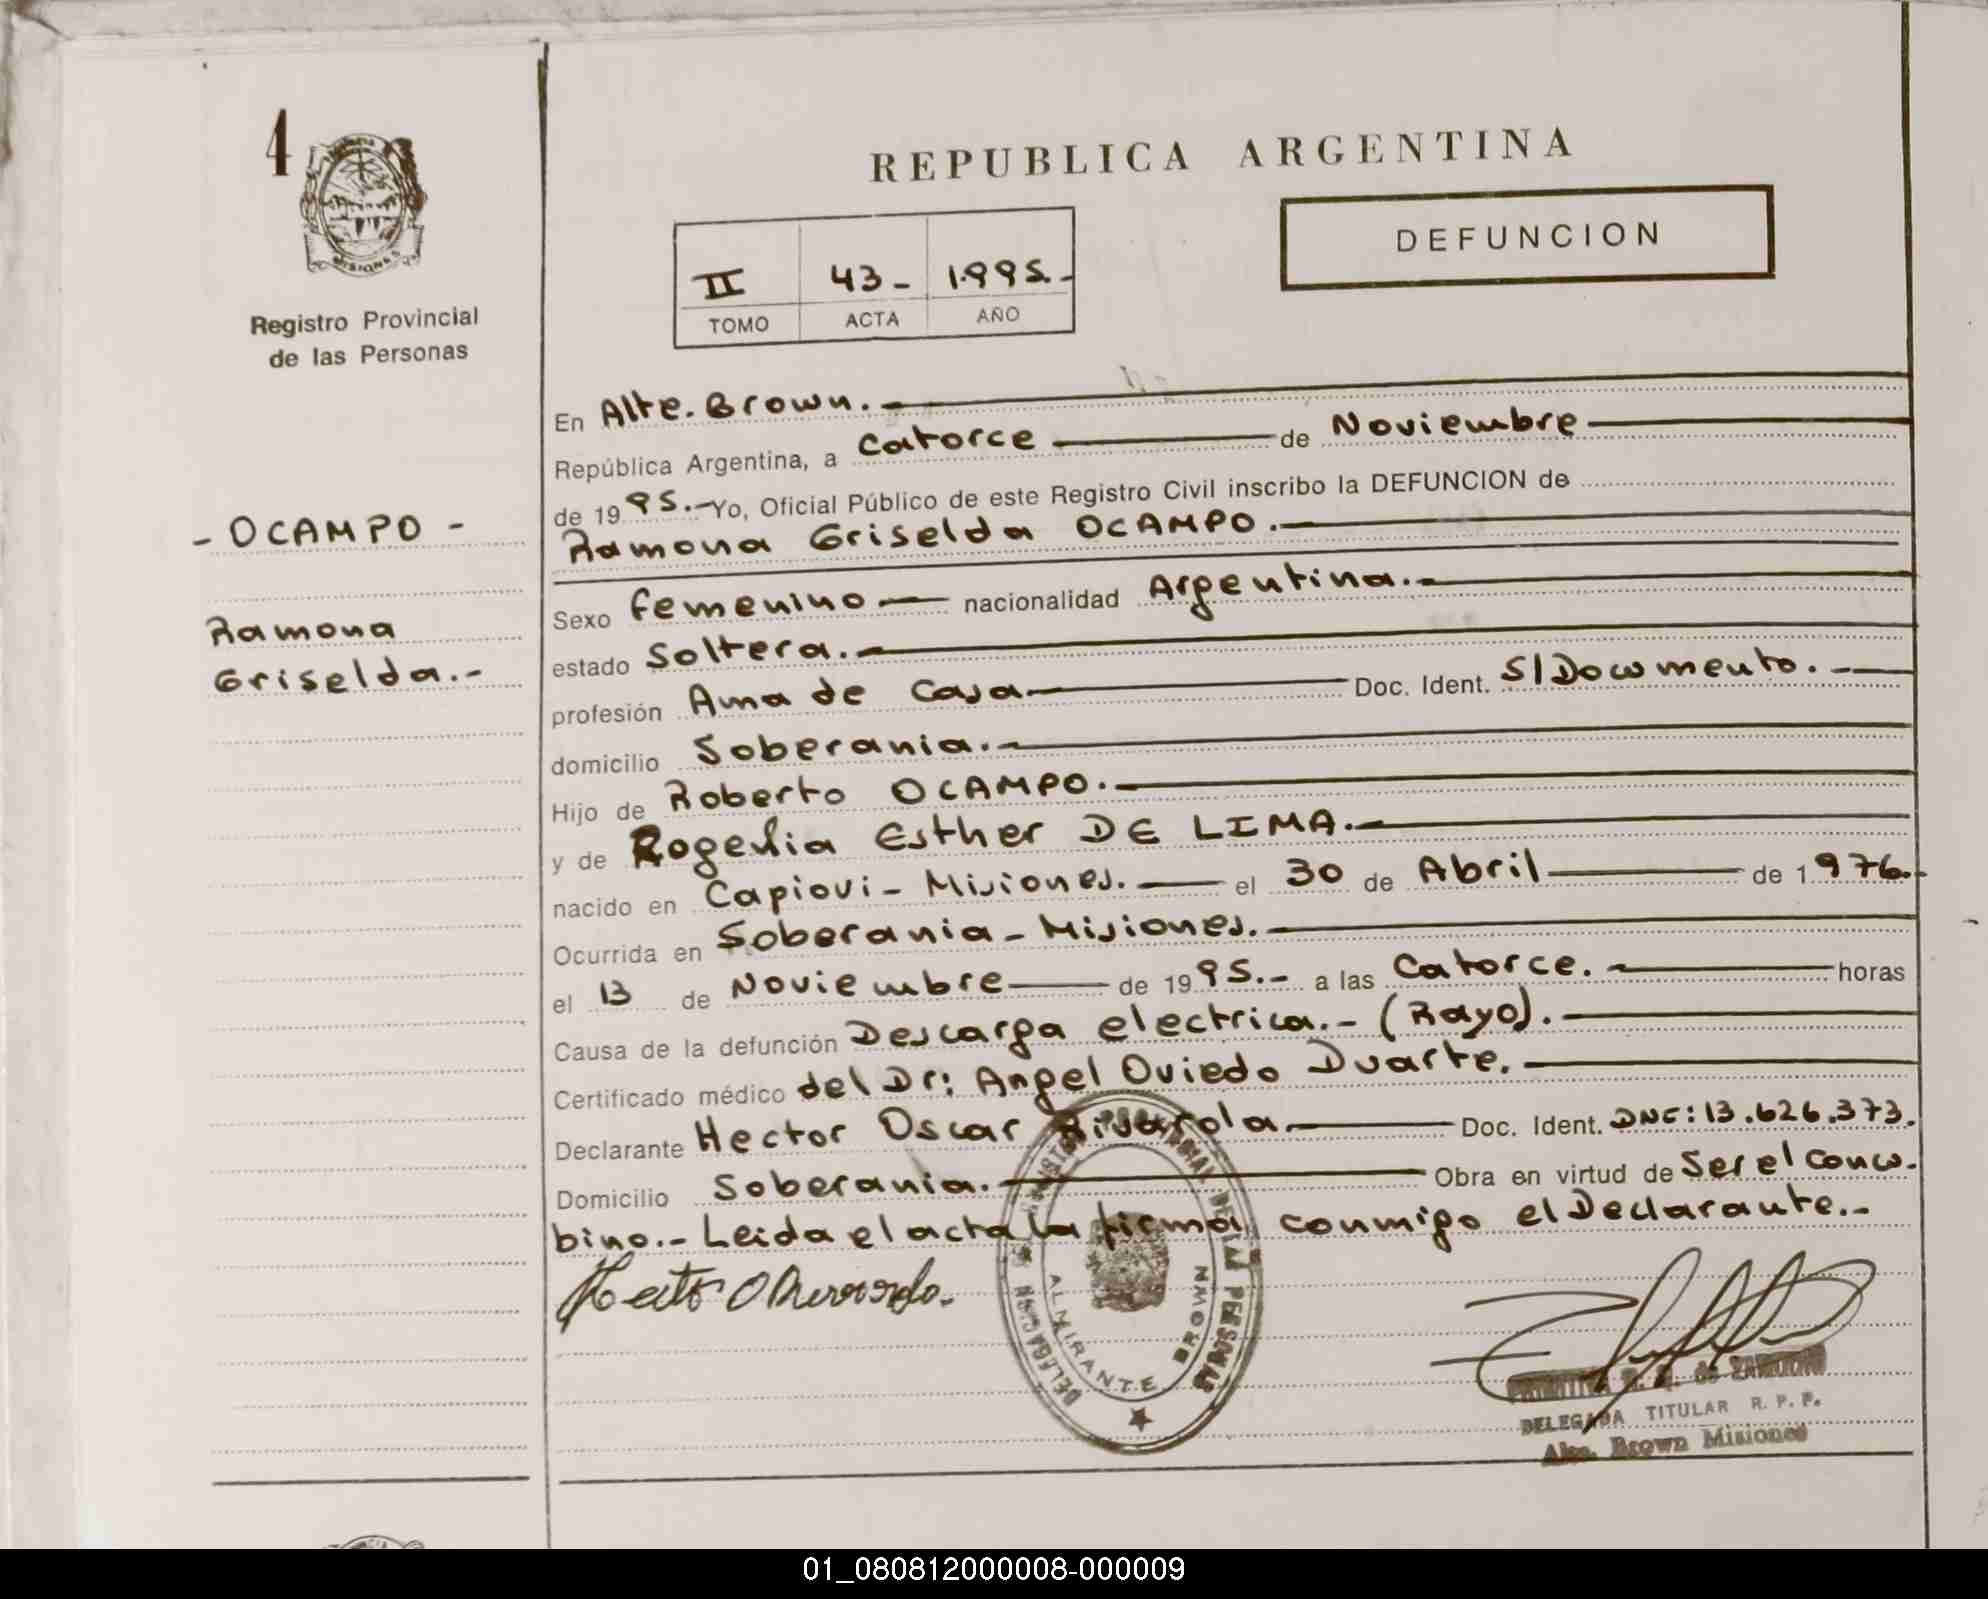 4
MISIONES
Registro Provincial
de las Personas
- OCAMPO -
Ramona
Griselda.-
REPUBLICA ARGENTINA
DEFUNCION
II 43- 1.995.-
TOMO ACTA AÑO
En Alte. Brown.-
República Argentina, a Catorce de Noviembre
de 1995.- Yo, Oficial Público de este Registro Civil inscribo la DEFUNCION de
Ramona Griselda OCAMPO.-
Sexo femenino nacionalidad Argentina.-
estado Soltera.-
profesión Ama de Casa Doc. Ident. S/Documento.-
domicilio Soberania.-
Hijo de Roberto OCAMPO.-
y de Rogelia Esther DE LIMA.-
nacido en Capiovi - Misiones.- el 30 de Abril de 1976.-
Ocurrida en Soberania - Misiones.-
el 13 de Noviembre de 1995.- a las Catorce.- horas
Causa de la defunción Descarga electrica.- (Rayo).-
Certificado médico del Dr: Angel Oviedo Duarte.-
Declarante Hector Oscar Rivarola.- Doc. Ident. DNI: 13.626.373.
Domicilio Soberania.- Obra en virtud de Ser el Concu-
bino.- Leida el acta la firma, conmigo el Declarante.-
DELEGACION
ALMIRANTE BROWN
DELEGADA TITULAR R. P. P.
Alte. Brown Misiones
01_080812000008-000009